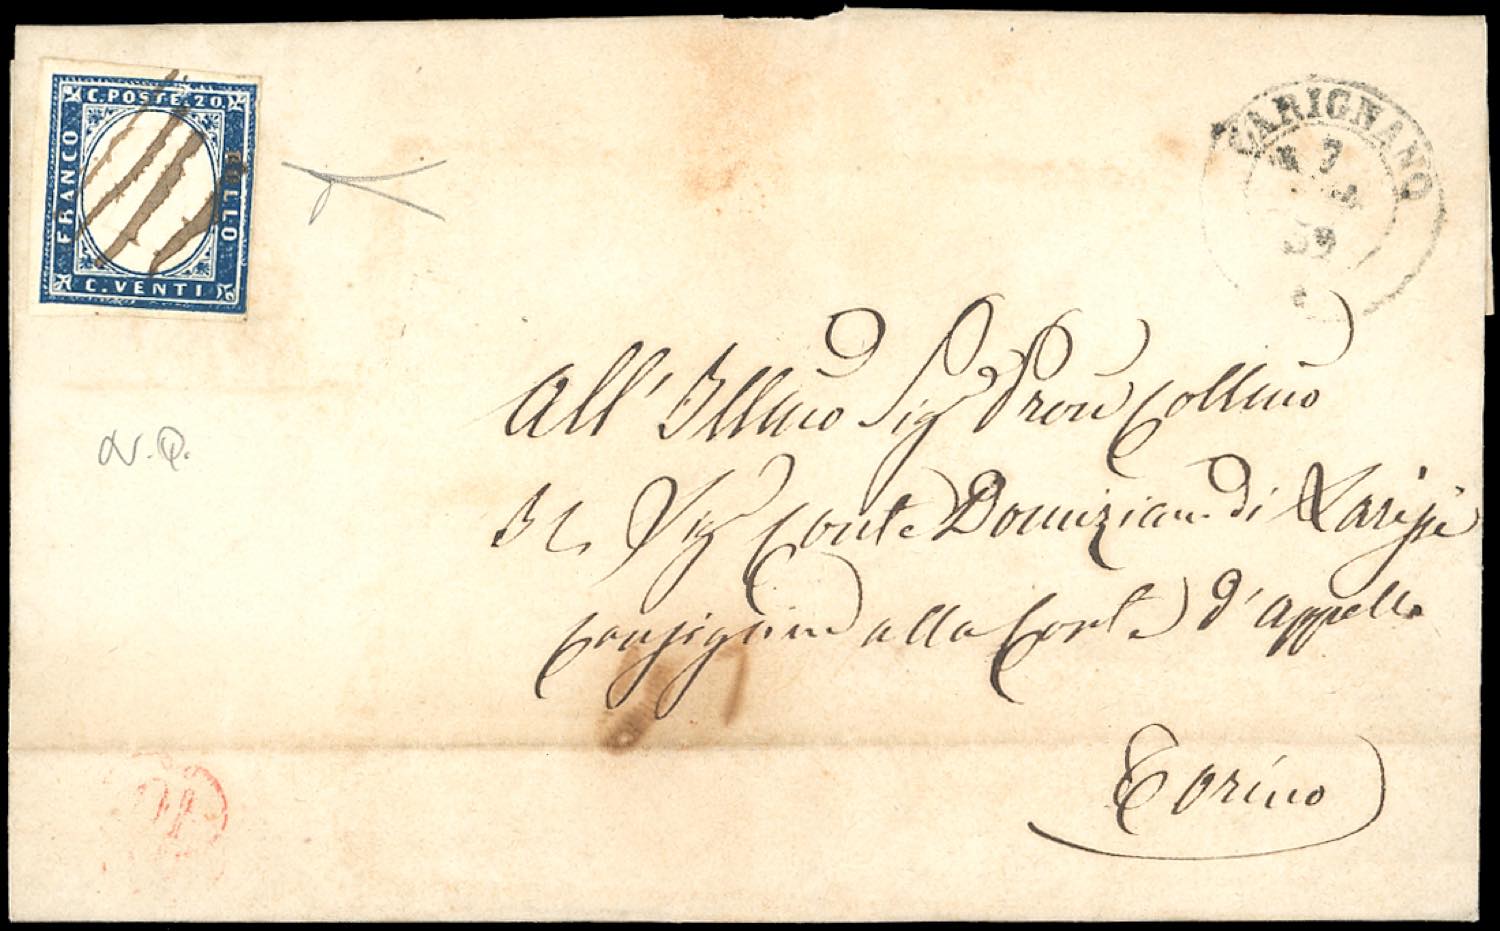 C. POSTE. 20.
FRANCO
BOLLO
C. VENTI
CARIGNANO
7
59
N. Q.
All' Illmo Sig Pron Collmo
Il Sig Conte Domiziano di
Consigliere alla Corte d'appello
Torino